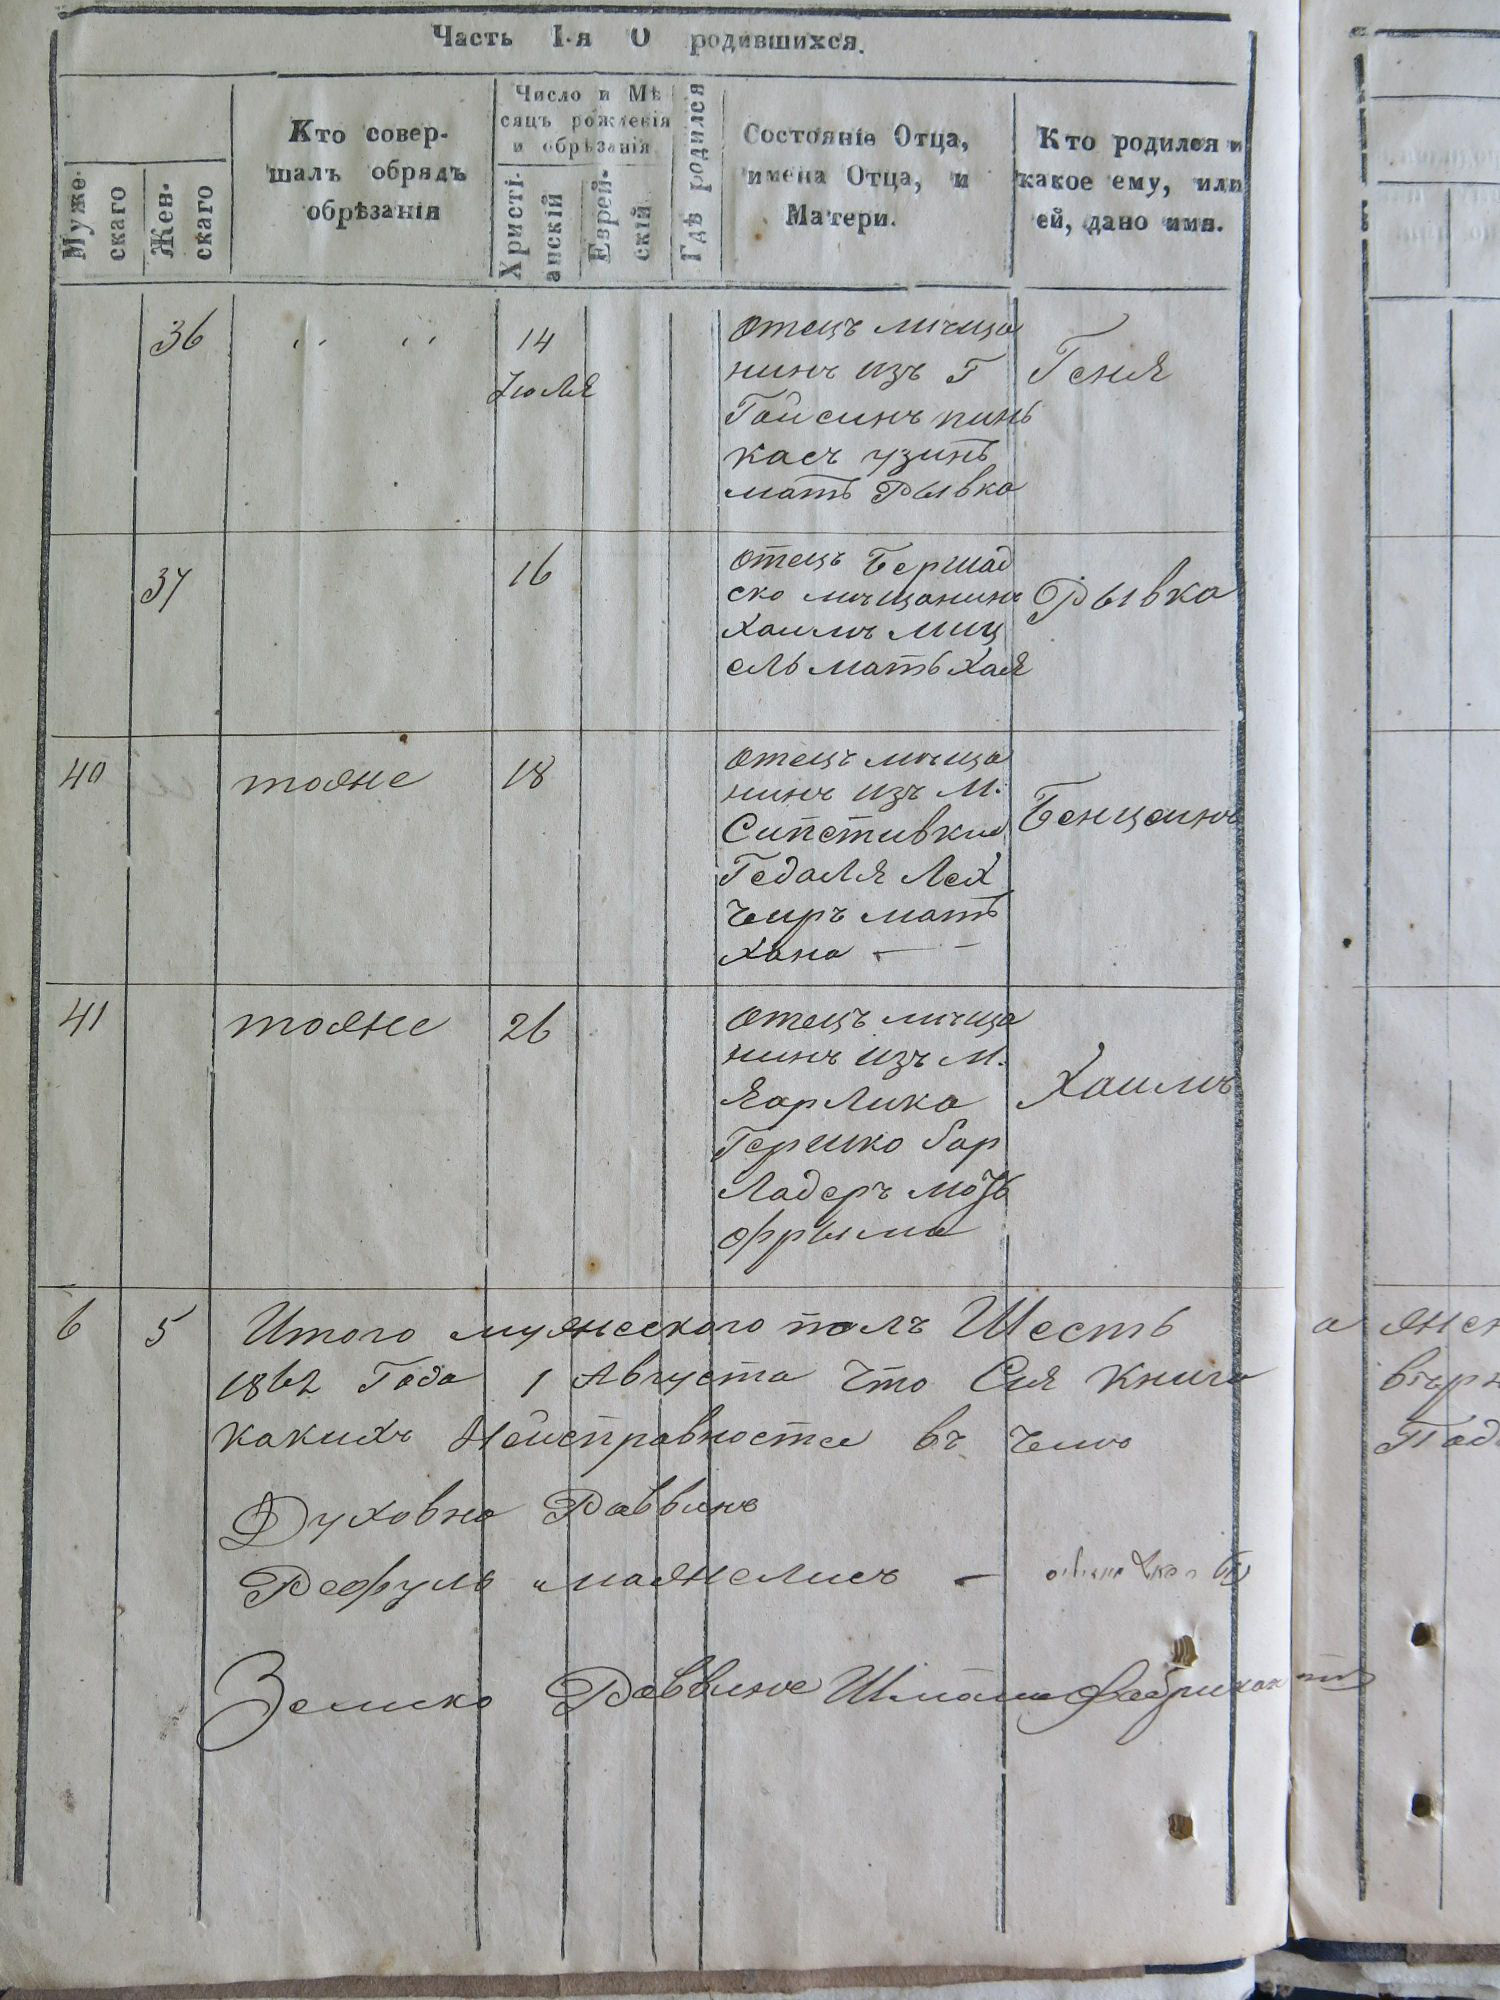 Часть I-я О родившихся.
Муже-
скаго
Жен-
скаго
Кто совер-
шалъ обрядъ
обрѣзанія
Число и Мѣ
сяцъ рожденія
и обрѣзанія
Христі-
анскій
Еврей-
скій
Гдѣ родился
Состояніе Отца,
имена Отца, и
Матери.
Кто родился и
какое ему, или
ей, дано имя.
36
14
Июля
отецъ мѣща
нинъ изъ Г
Гайсинъ пинь
касъ узинъ
мать Рывка
Геня
37
16
отецъ Бершад
ско мѣщанинъ
Хаимъ Миц
ель мать Хая
Рывка
40
тояже
18
отецъ мѣща
нинъ изъ М.
Гедаля Лех
чиръ мать
Хана —
Бенцеинъ
41
тояже
26
отецъ мѣща
нинъ изъ М.
Ярлика
Гершко бар
Ладеръ мать
фрыма
Хаимъ
6 5 Итого мужескаго полъ Шесть а
1862 Года 1 Августа что Сия книга
какихъ Неисправности въ чемъ
Духовно Раввинъ
Рефуль
Земско Раввинъ Фабрикантъ